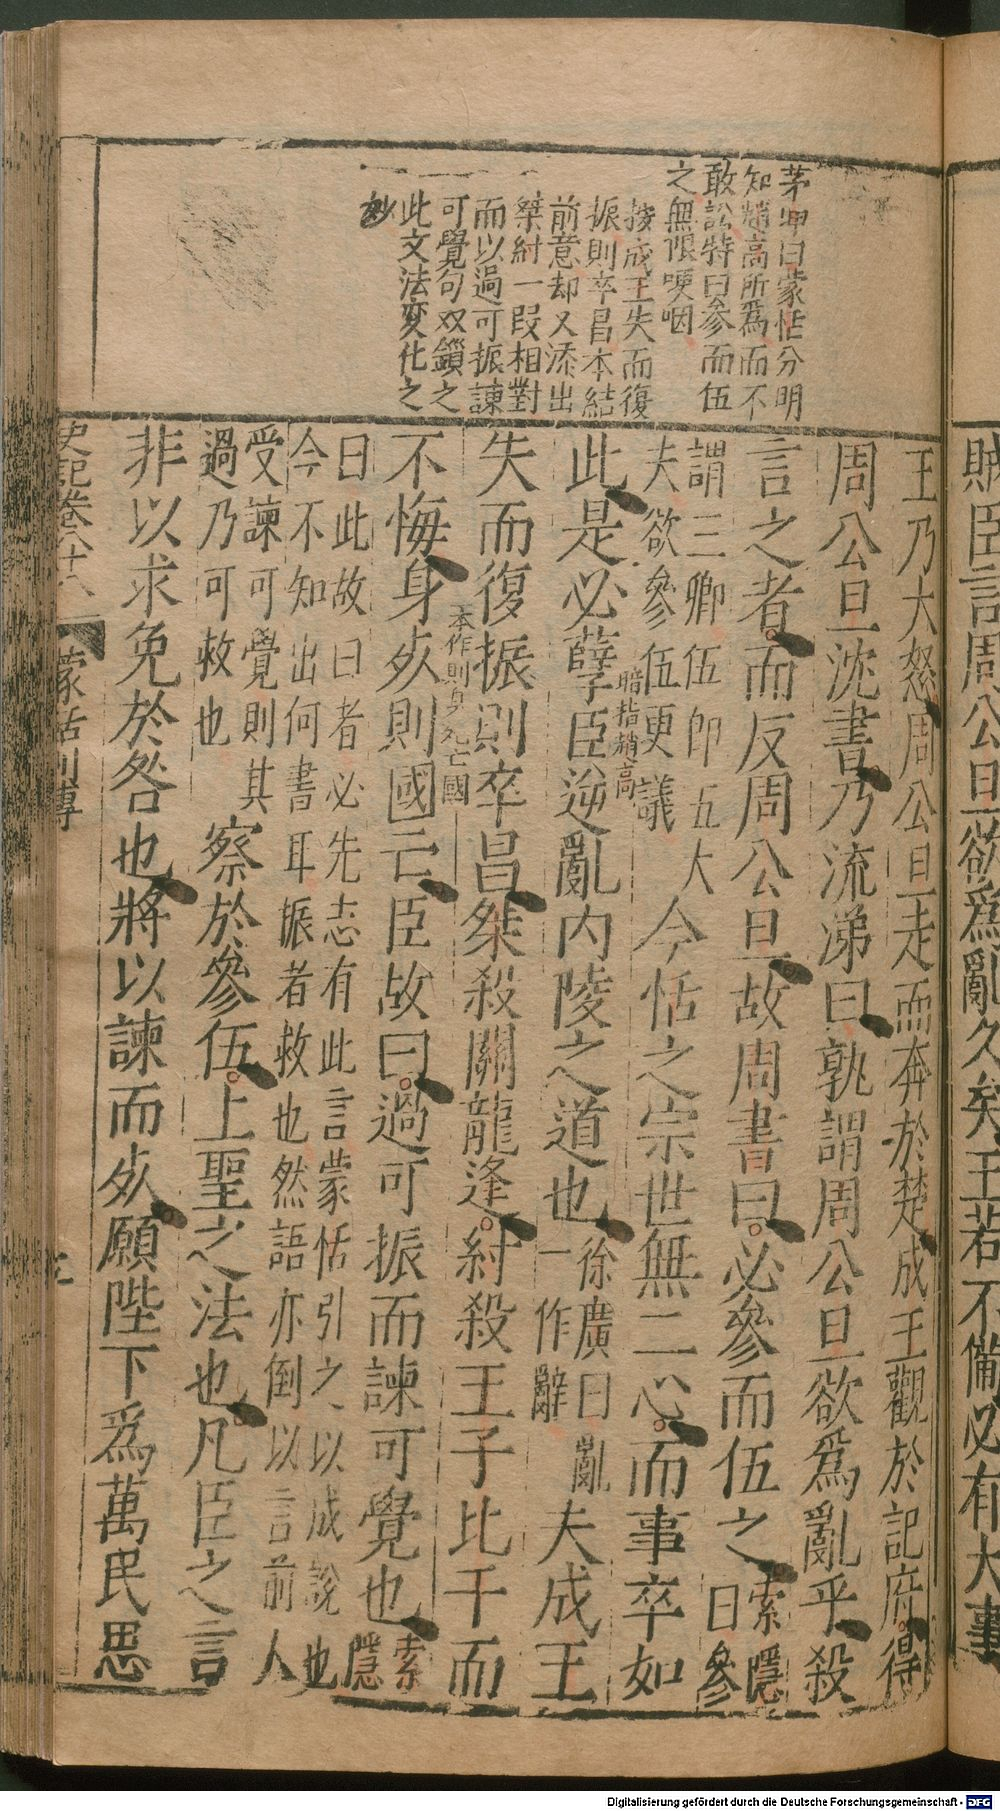 賊臣言周公旦欲爲亂久矣王若不備必有大事
茅坤曰蒙恬分明
知趙高所爲而不
敢訟特曰參而伍
之無限哽咽
按成王失而復
振則卒昌本結
前意却又添出
桀紂一段相對
而以過可振諫
可覺句双鎖之
此文法変化之
妙
王乃大怒周公旦走而奔於楚成王觀於記府得
周公旦沈書乃流涕曰孰謂周公旦欲爲亂乎殺
言之者而反周公旦故周書曰必參而伍之
索隱
曰參
謂三卿伍即五大
夫欲參伍更議
今恬之宗世無二心而事卒如
此是必孽臣逆亂内陵之道也
暗指趙高
徐廣曰亂
一作辭
夫成王
失而復振則卒昌桀殺關龍逢紂殺王子比干而
不悔身死則國亡臣故曰過可振而諫可覺也
本作則身死亡國
索
隱
曰此故曰者必先志有此言蒙恬引之以成說也
今不知出何書耳振者救也然語亦倒以言前人
受諫可覺則其
過乃可救也
察於參伍上聖之法也凡臣之言
非以求免於咎也將以諫而死願陛下爲萬民思
史記卷八十八
蒙恬列傳
Digitalisierung gefördert durch die Deutsche Forschungsgemeinschaft - DFG